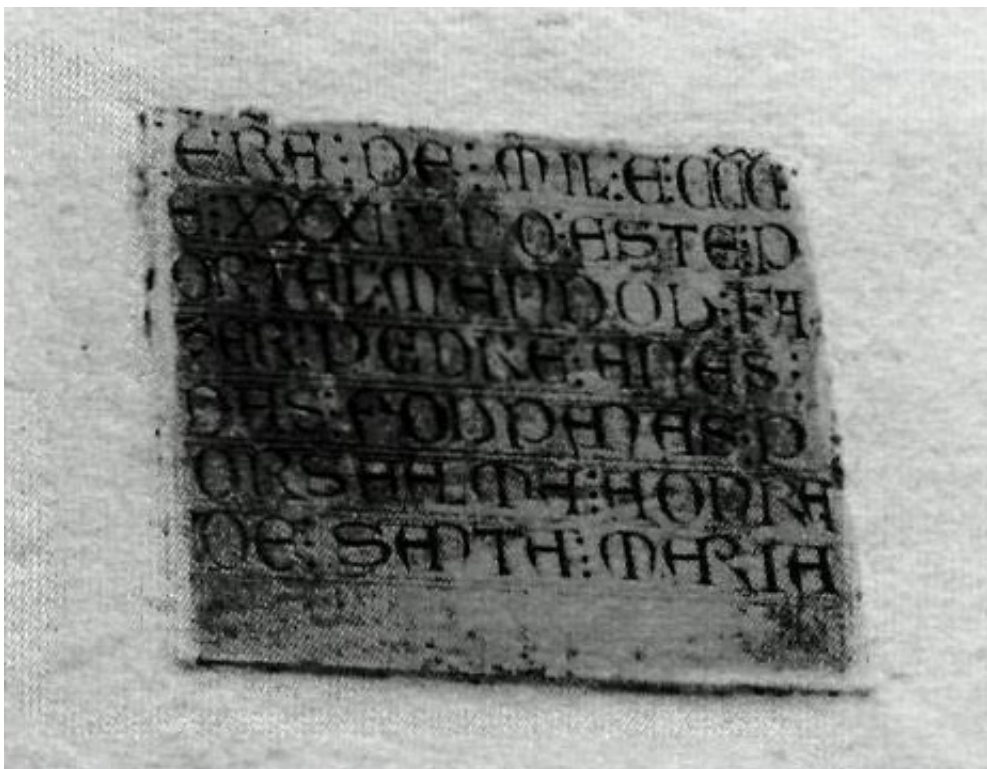 ERA : DE : MIL : E : CCC :
E : XXXI O : ESTE P
ORTAL : MANDOU : FA
ZER : PEDRE : ANES :
DAS : POUPANAS : P
OR SA ALMA : A ONRA
DE : SANTA : MARIA